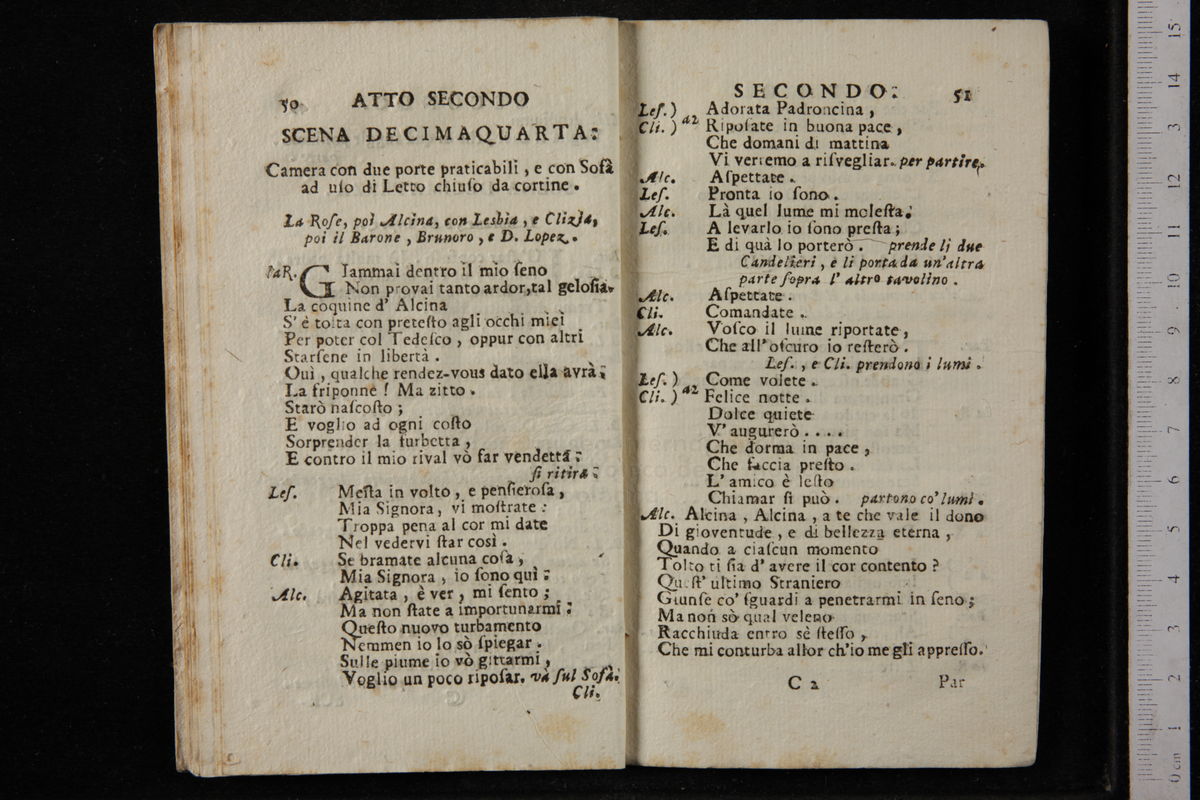 50 ATTO SECONDO
SCENA DECIMAQUARTA:
Camera con due porte praticabili, e con Sofà
ad uſo di Letto chiuſo da cortine.
La Roſe, poi Alcina, con Lesbia, e Clizia,
poi il Barone, Brunoro, e D. Lopez.
laR. GIammai dentro il mio ſeno
Non provai tanto ardor, tal geloſia.
La coquine d' Alcina
S' è tolta con preteſto agli occhi miei
Per poter col Tedeſco, oppur con altri
Starſene in libertà.
Ouì, qualche rendez-vous dato ella avrà;
La friponne! Ma zitto.
Starò naſcoſto;
E voglio ad ogni coſto
Sorprender la furbetta,
E contro il mio rival vò far vendetta;
ſi ritira;
Leſ. Meſta in volto, e penſieroſa,
Mia Signora, vi moſtrate:
Troppa pena al cor mi date
Nel vedervi ſtar così.
Cli. Se bramate alcuna coſa,
Mia Signora, io ſono quì:
Alc. Agitata, è ver, mi ſento;
Ma non ſtate a importunarmi:
Queſto nuovo turbamento
Nemmen io lo sò ſpiegar.
Sulle piume io vò gittarmi,
Voglio un poco ripoſar. và ſul Sofà.
Cli.
SECONDO: 51
Leſ. ) Adorata Padroncina,
Cli. ) a2 Ripoſate in buona pace,
Che domani di mattina
Vi verremo a riſvegliar. per partire.
Alc. Aſpettate.
Leſ. Pronta io ſono.
Alc. Là quel lume mi moleſta.
Leſ. A levarlo io ſono preſta;
E di quà lo porterò. prende li due
Candelieri, e li porta da un'altra
parte ſopra l' altro tavolino.
Alc. Aſpettate.
Cli. Comandate.
Alc. Voſco il lume riportate,
Che all'oſcuro io reſterò.
Leſ., e Cli. prendono i lumi.
Leſ. ) Come volete.
Cli. ) a2 Felice notte.
Dolce quiete
V' augurerò....
Che dorma in pace,
Che faccia preſto.
L' amico è leſto
Chiamar ſi può. partono co' lumi.
Alc. Alcina, Alcina, a te che vale il dono
Di gioventude, e di bellezza eterna,
Quando a ciaſcun momento
Tolto ti ſia d' avere il cor contento?
Queſt' ultimo Straniero
Giunſe co' ſguardi a penetrarmi in ſeno;
Ma non sò qual veleno
Racchiuda entro sè ſteſſo,
Che mi conturba allor ch'io me gli appreſſo.
C 2 Par